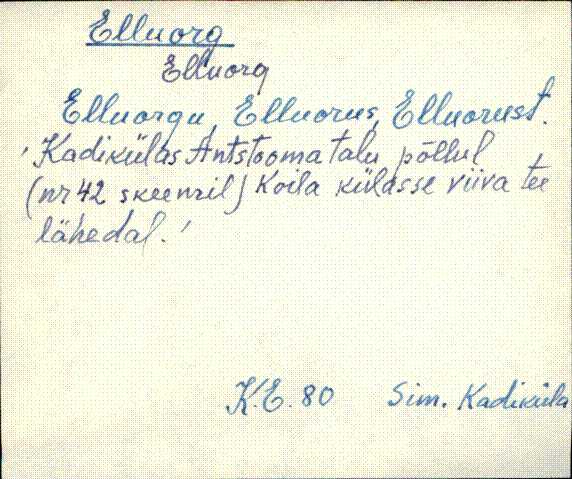 Elluorg
Elluorg
Elluorgu, Elluorus, Elluorust.
'Kadikülas Antstooma talu põllul
(nr 42 skeemil) Koila külasse viiva tee
lähedal.'
K.E. 80 Sim. Kadiküla